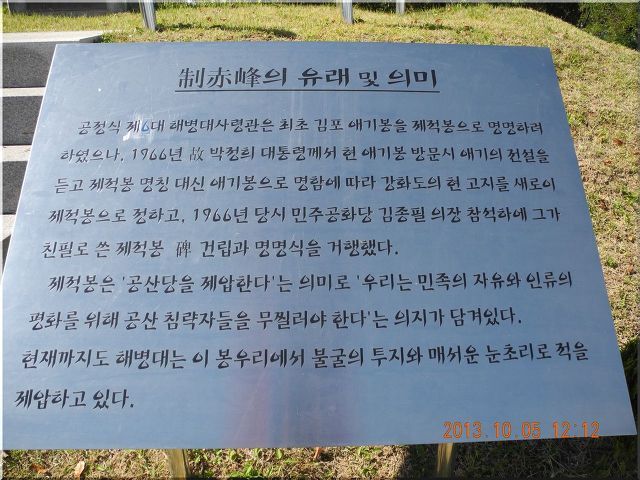 制赤峰의 유래 및 의미
공정식 제6대 해병대사령관은 최초 김포 애기봉을 제적봉으로 명명하려
하였으나, 1966년 故 박정희 대통령께서 현 애기봉 방문시 애기의 전설을
듣고 제적봉 명칭 대신 애기봉으로 명함에 따라 강화도의 현 고지를 새로이
제적봉으로 정하고, 1966년 당시 민주공화당 김종필 의장 참석하에 그가
친필로 쓴 제적봉 碑 건립과 명명식을 거행했다.
제적봉은 '공산당을 제압한다'는 의미로 '우리는 민족의 자유와 인류의
평화를 위해 공산 침략자들을 무찔러야 한다'는 의지가 담겨있다.
현재까지도 해병대는 이 봉우리에서 불굴의 투지와 매서운 눈초리로 적을
제압하고 있다.
2013.10.05 12:12